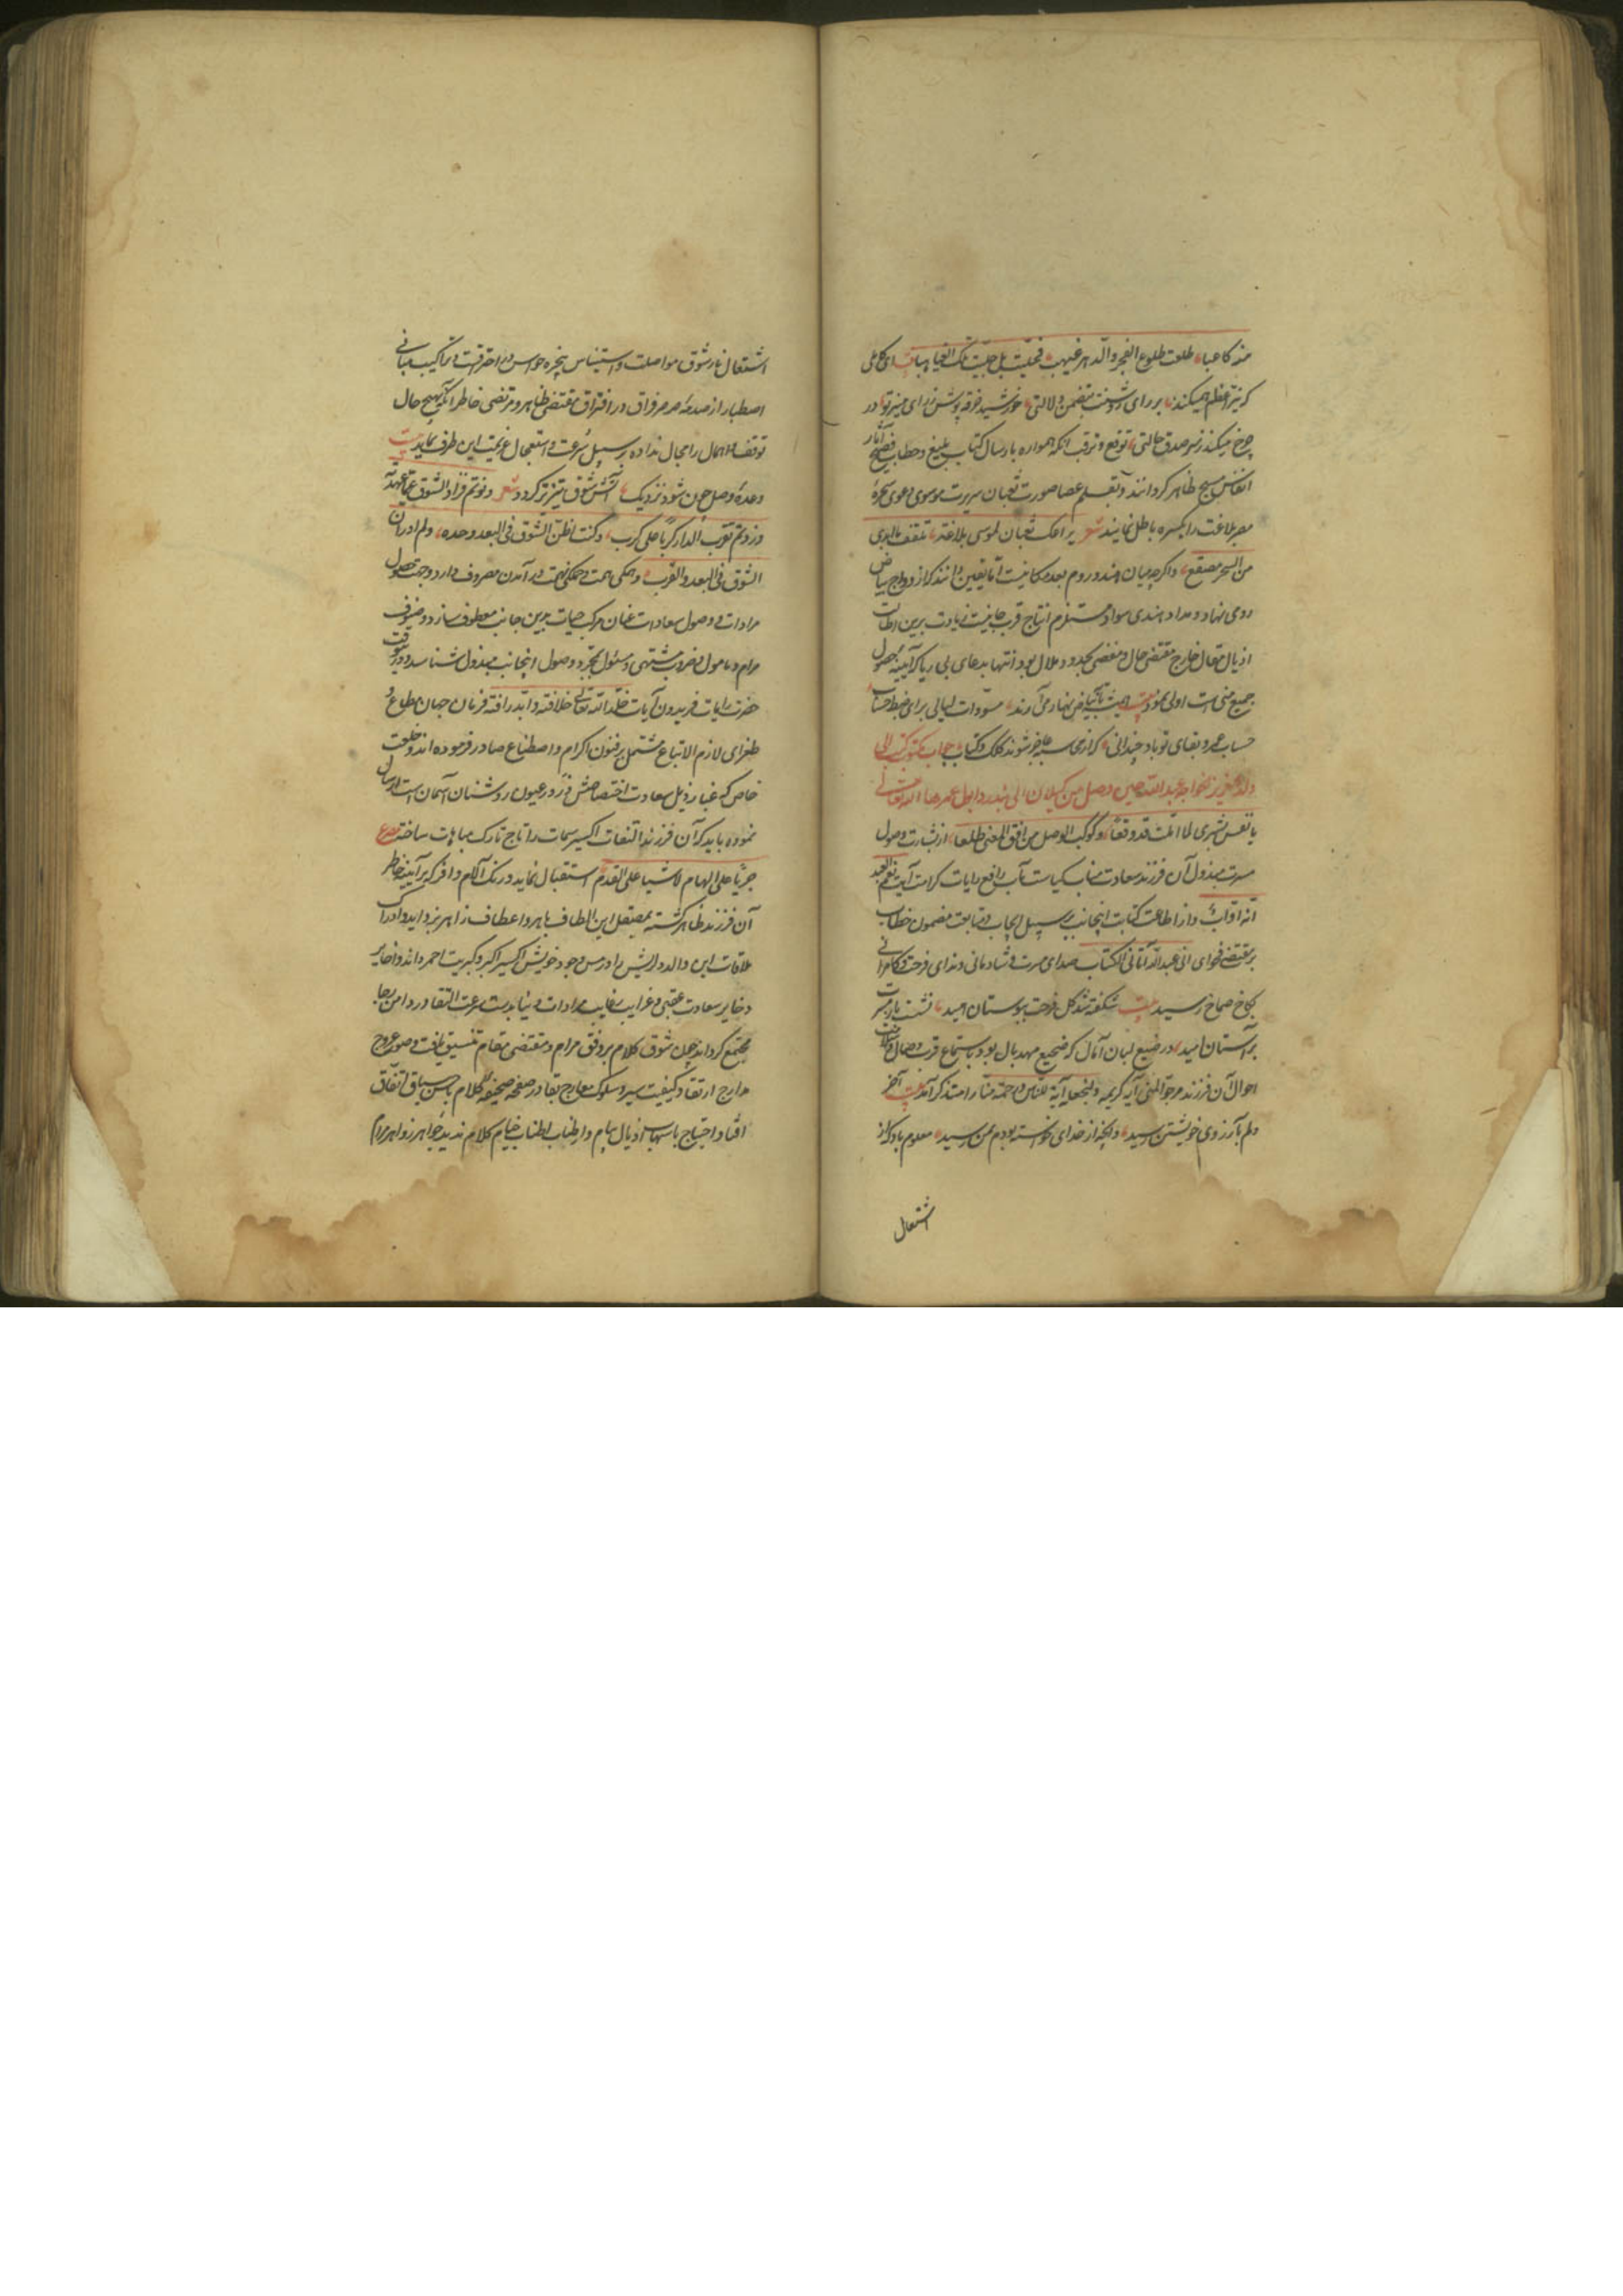 طلعت طلوع الفجر والدهر غیهب فجلیت بل جلیت تلک الغیاهبا
که نیر اعظم میکند بر رای روشنت متضمن دلالتی خورشید خرقه پوش ز رای منیر تو در
چرخ میکند ز سر صدق حالتی توقع و ترقب آنکه همواره بارسال کتاب بلیغ و خطاب فصیح آثار
انفاس مسیح ظاهر کردانند و بقلم عصا صورت ثعبان سیرت موسوی دعوی سحرهٔ
مصر بلاغت را یکسره باطل نمایند شعر یراعک ثعبان لموسی بلاغته تلقف ما ابدی
من السحر مصقع و اکرچه میان هند و روم بعد مکانیست اما یقین دانند که از ازدواج بیاض
رومی نهاد و مداد هندی سواد مستلزم انتاج قرب جانیست زیادت برین اطالت
اذیال مقال خارج مقتضی حال و مفضی بحد و ملال بود انتها بدعای بی ریا که آیینه حصول
جمیع منی است اولی نمود بیت همیشه تا که بیاض نهار می آرند مسودات لیالی برای ضبط حساب
حساب عمر و بقای تو باد چندانی که از محاسبه عاجز شوند کلک و کتاب جواب مکتوب کتب الی
ولد العزیز الخواجه عبدالله حین وصل من کیلان الی بندر دابول عمرها الله تعالی
یا نفس بشری لما املت قد وقعا و کوکب الوصل من افق المنی طلعا از بشارت وصول
مسرت مبذول آن فرزند سعادت مناب کیاست مآب رافع رایات کرامت آیت نعم العبد
انه اواب و از اطاعت کتابت اینجانب بر سبیل ایجاب و متابعت مضمون خطاب
بر مقتضی فحوای انی عبدالله آتانی الکتاب صدای مسرت و شادمانی و ندای فرحت و کامرانی
بکاخ صماخ رسید بیت شکفته شد کل فرحت ببوستان امید نشست یار مسرت
بر آستان امید و رضیع لبان آمال که ضجیع مهد بال بود باستماع قرب وصال و سلامت
احوال آن فرزند مرجوّ المنی آیه کریمه ولنجعله آیة للناس و رحمة منا را متذکر آمد بیت آخر
دلم بآرزوی خویشتن رسید و آنچه از خدای خواسته بودم بمن رسید معلوم باد که از
اشتعال
اشتعال نار شوق مواصلت و استیناس پنجره حواس در احتراقست و تراکیب مبانی
اصطبار از صدمهٔ صرصر فراق در افتراق مقتضی ظاهر و مرتضی خاطر آنکه بهیچ حال
توقف و اهمال را مجال نداده بر سبیل سرعت و استعجال عزیمت این طرف نماید بیت
وعدهٔ وصل چون شود نزدیک آتش شوق تیزتر کردد شعر دنوتم فزاد الشوق عما عهدته
وزدتم بقرب الدار کربا علی کرب وکنت اظن الشوق فی البعد وحده ولم ادر ان
الشوق فی البعد والقرب و همکی همت و جملکی نهمت در آمدن مصروف دارد و جهت حصول
مرادات و وصول سعادات عنان مرکب حیات بدین جانب معطوف سازد و صنوف
مرام و مامول و ضروب مشتهی و مسئول بمجرد وصول اینجانب مبذول شناسد و درین وقت
حضرت رایات فریدون آیات خلد الله تعالی خلافته و ابد رافته فرمان جهان مطاع
طغرای لازم الاتباع مشتمل بر فنون اکرام و اصطناع صادر فرموده اند و خلعت
خاص که غبار ذیل سعادت اختصاصش ذرور عیون روشنان آسمان است ارسال
نموده باید که آن فرزند التفات اکسیر سمات را تاج تارک مباهات ساخته مصرع
جریا علی الهام لا مشیا علی القدم استقبال نماید و زنک آلام وافر که بر آیینه خاطر
آن فرزند ظاهر کشته بمصقل این الطاف باهر و اعطاف زاهر بزداید و ادراک
ملاقات این والد دلریش را در مس وجود خویش اکسیر اکبر و کبریت احمر داند و اخایر
ذخایر سعادت عقبی و غرایب رغایب مرادات دنیا بدست سرعت التقا در دامن رجا
مجتمع کرداند چون شوق کلام بر وفق مرام و مقتضی مقام تنسیق یافت و صور عروج
مدارج ارتقا و کیفیت سیر و سلوک معارج بقا در صفحه صحیفه کلام باحسن سیاق اتفاق
افتاد احتیاج باسهاب اذیال پیام و اطناب اطناب خیام کلام ندید جواهر زواهر مرام